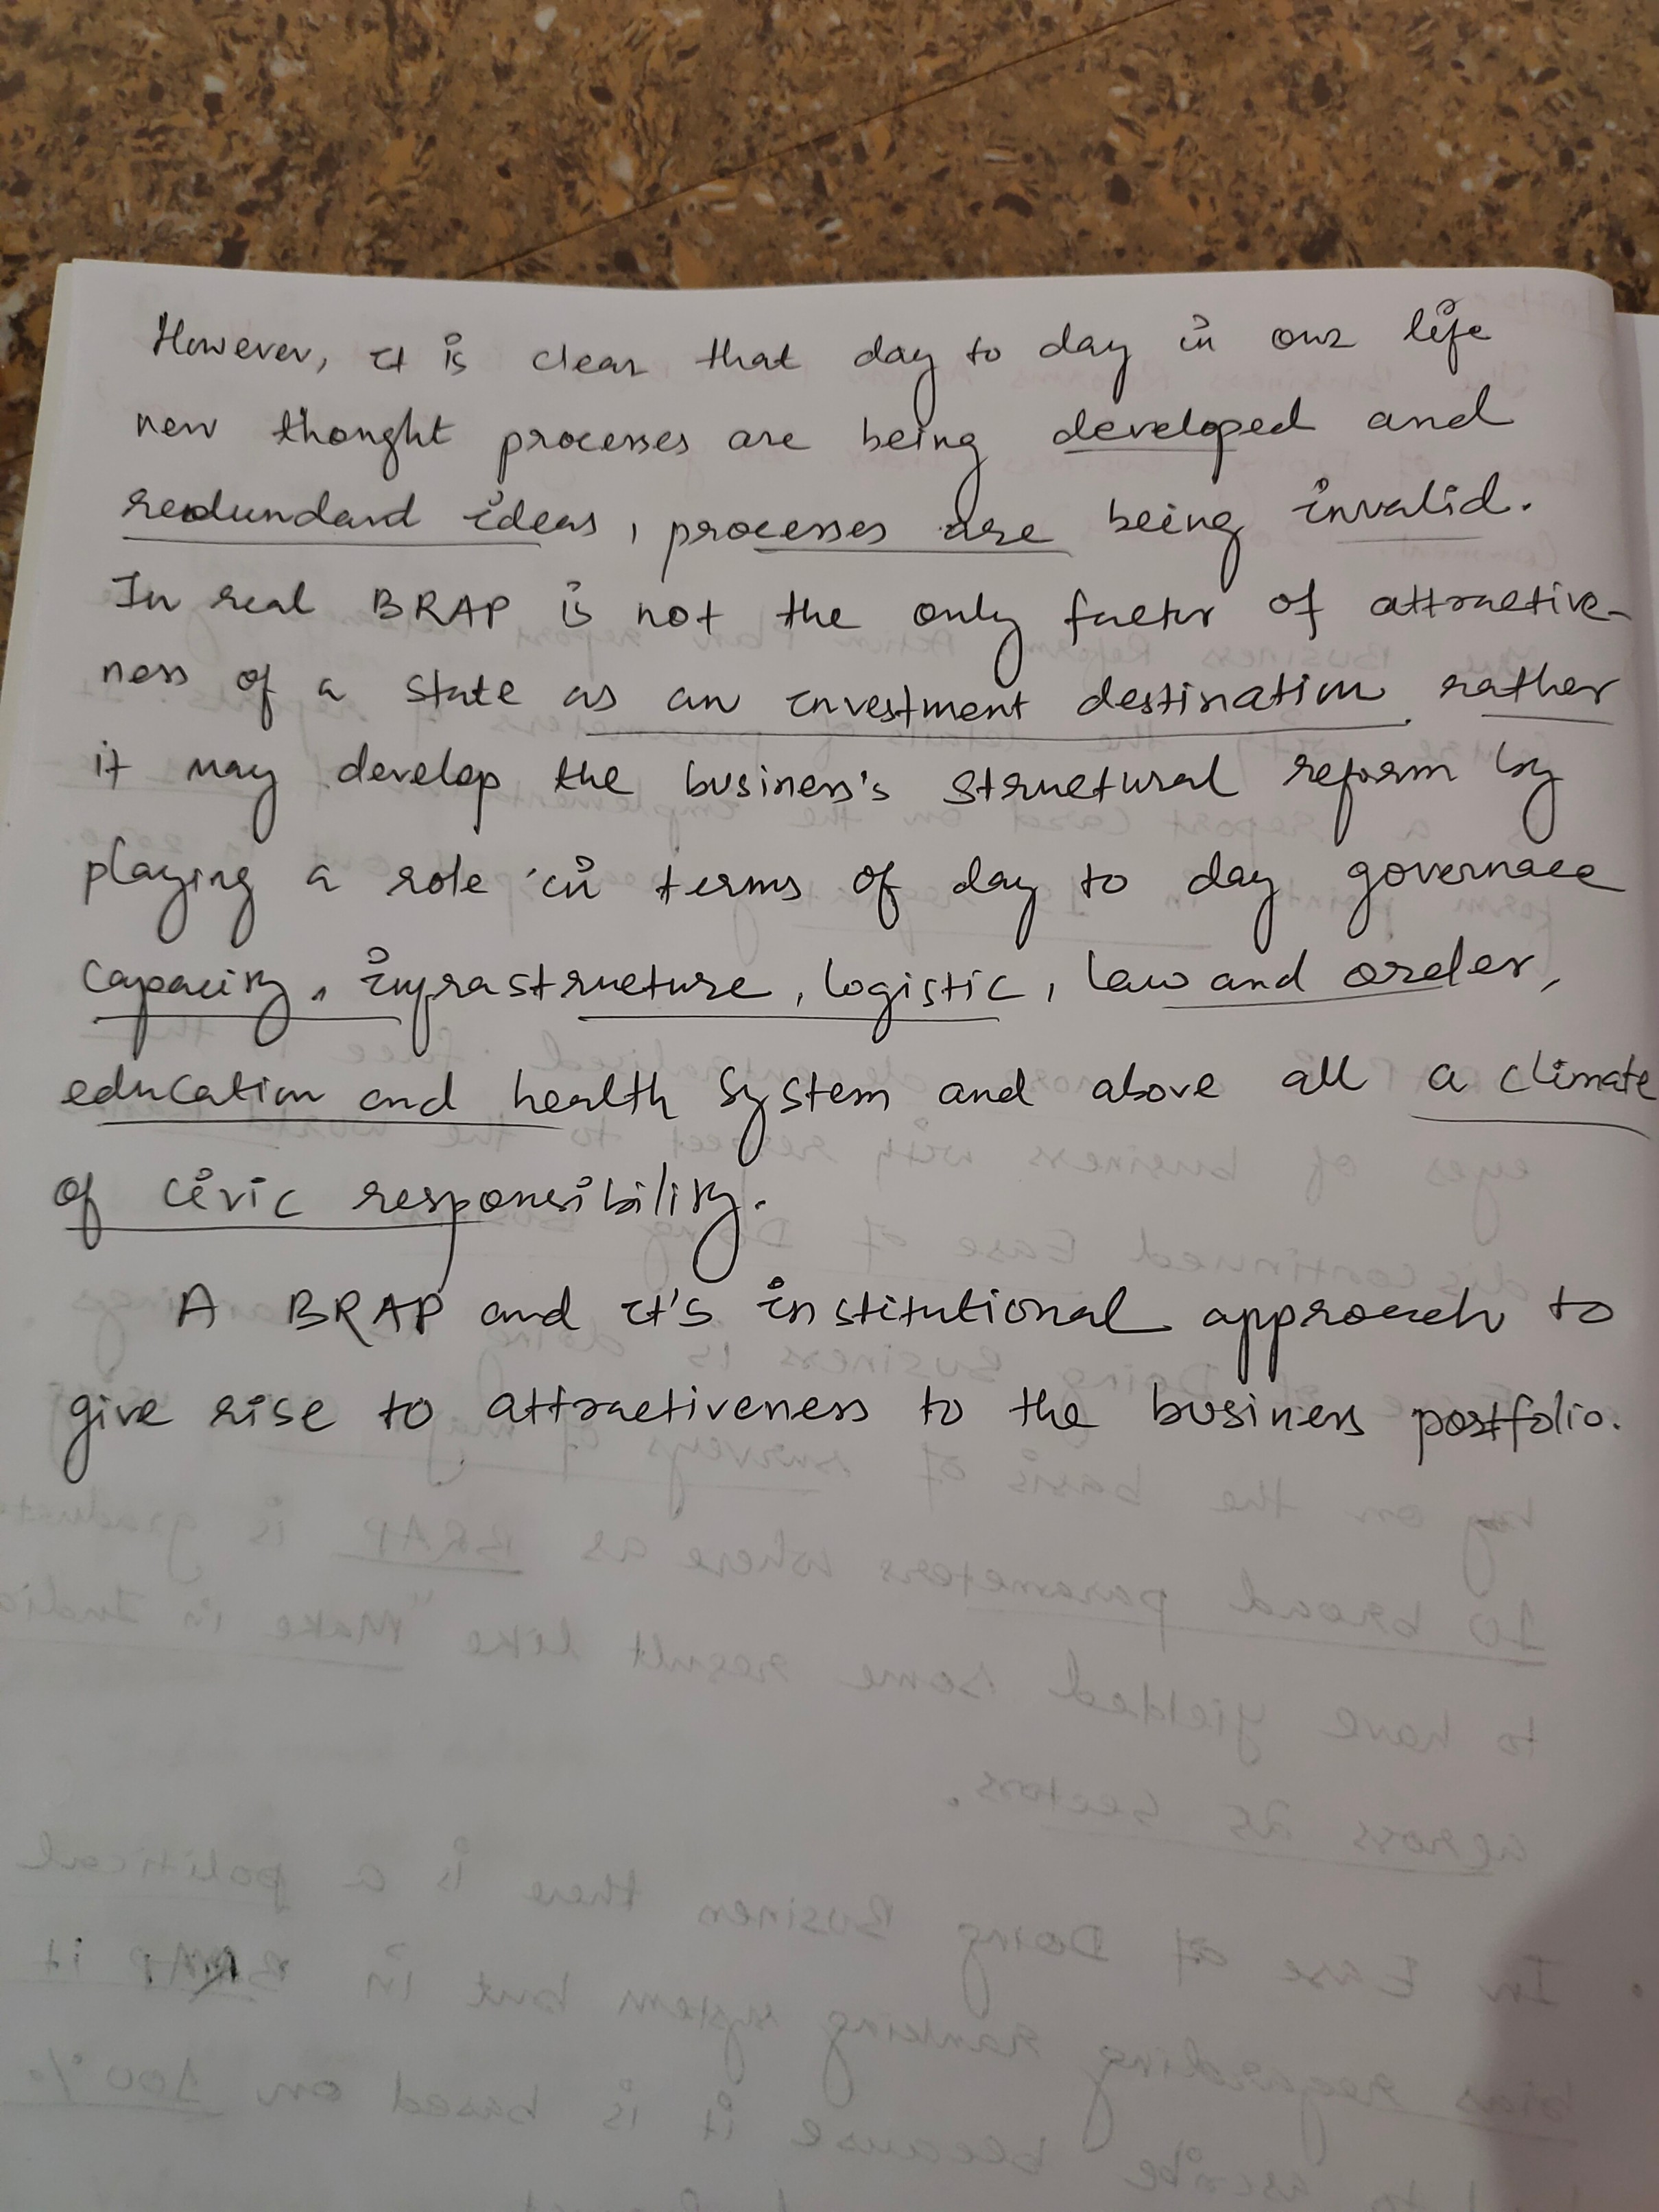 However, it is clear that day to day in our life
new thought processes are being developed and
redundard ideas, processes are being invalid.
In real BRAP is not the only factor of attractive-
ness of a state as an investment destination rather
it may develop the business's structural reform by
playing a role in terms of day to day governace
capacity, infrastructure, logistic, law and order,
education and health system and above all a climate
of civic responsibility.
A BRAP and it's institutional approach to
give rise to attractiveness to the business portfolio.